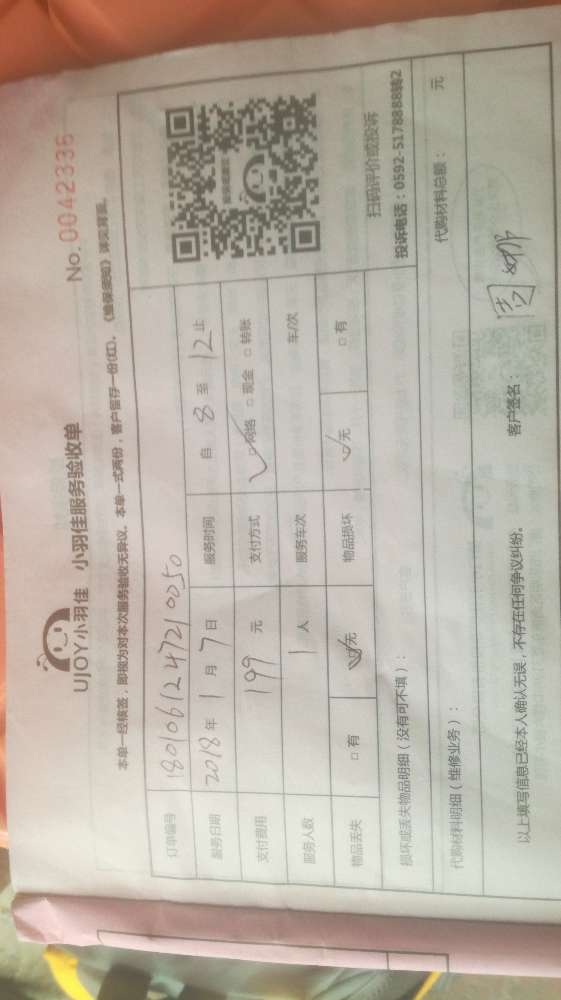 UJOY小羽佳 小羽佳服务验收单
No. 0042336
本单一经核签，即视为对本次服务验收无异议。本单一式两份，客户留存一份(红)。《维保须知》详见背面。
订单编号 180106124721 0050
服务日期 2018年 1 月 7 日 服务时间 自 8 至 12 止
支付费用 199 元 支付方式 ☑网络 □现金 □转账
服务人数 1 人 服务车次 车/次
物品丢失 □有 ☑无 物品损坏 ☑无 □有
扫码评价或投诉
投诉电话：0592-5178888转2
损坏或丢失物品明细（没有可不填）：
代购材料明细（维修业务）： 代购材料总额： 元
以上填写信息已经本人确认无误，不存在任何争议纠纷。 客户签名：